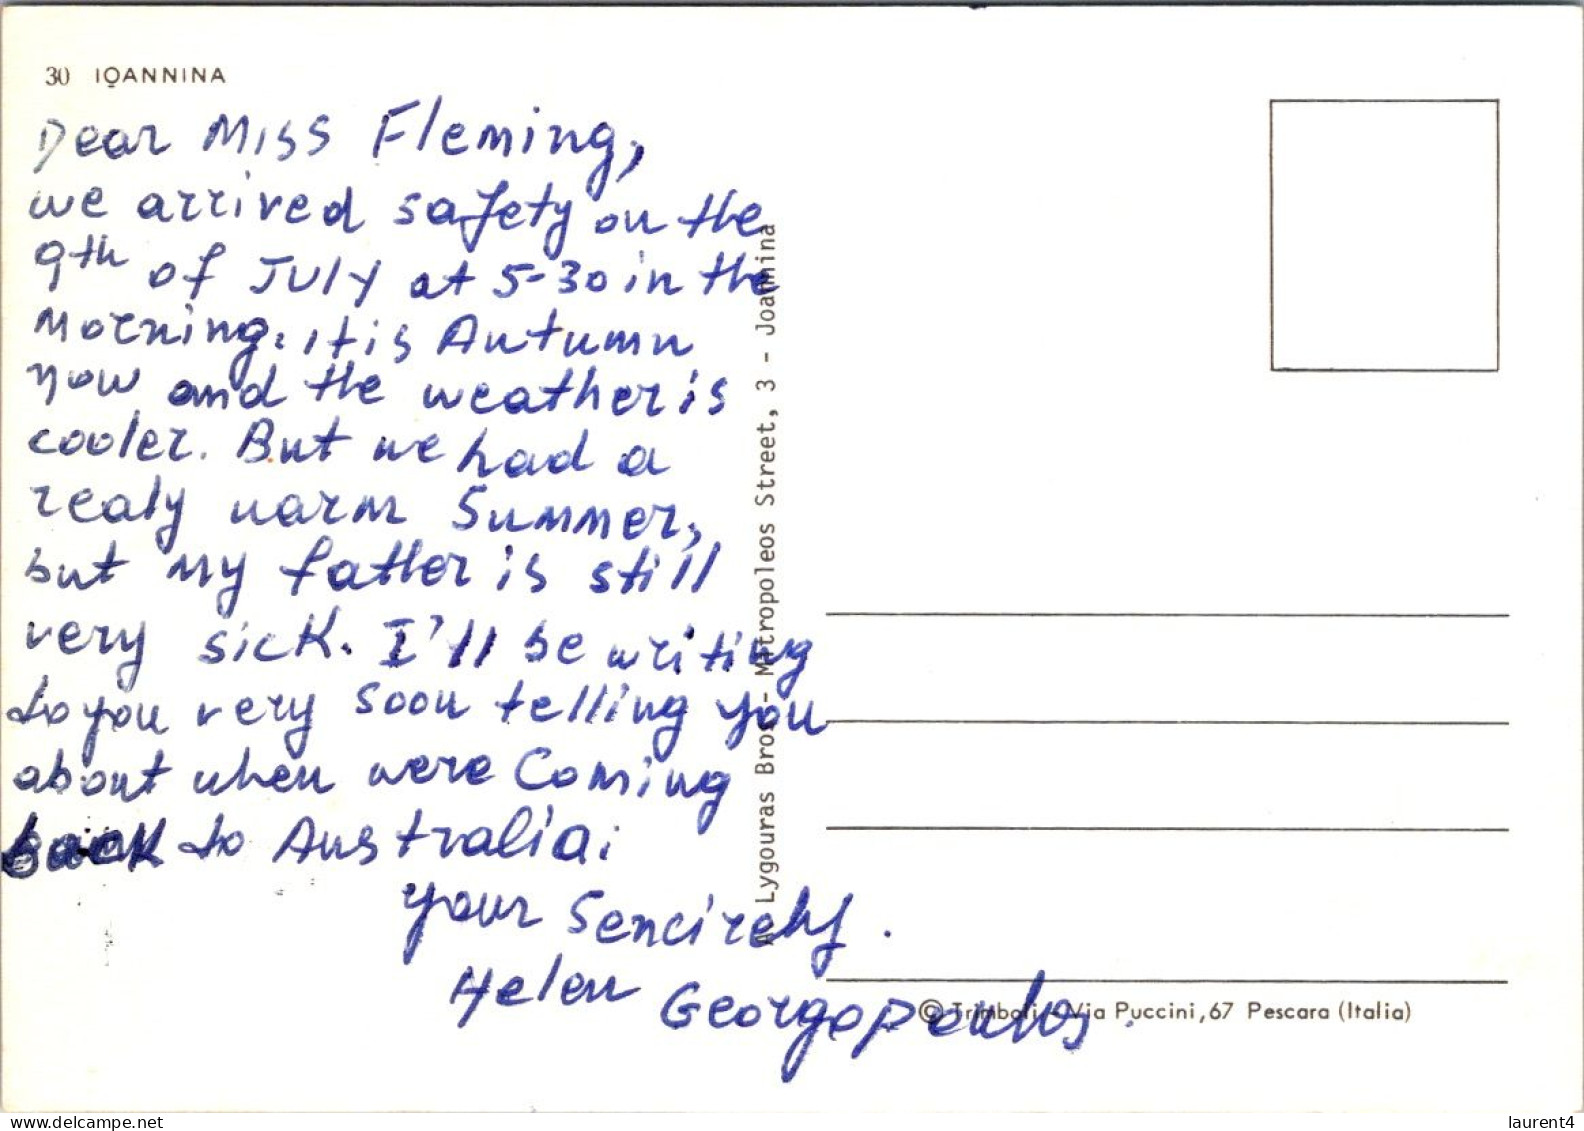 30 IOANNINA
Dear Miss Fleming,
we arrived safety on the
9th of July at 5-30 in the
Morning. it is Autumn
now and the weather is
cooler. But we had a
realy warm Summer,
but my father is still
very sick. I'll be writing
to you very soon telling you
about when were Coming
back to Australia.
your Sencirely.
Helen Georgopoulos.
A. Lygouras Bros - Mitropoleos Street, 3 - Joannina
© Trimboli - Via Puccini, 67 Pescara (Italia)
delcampe.net
laurent4